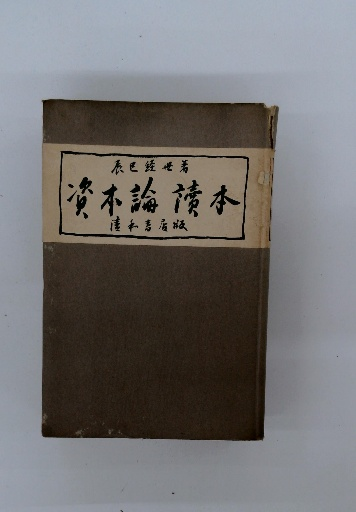 辰巳經世著
资本論讀本
清和書店版